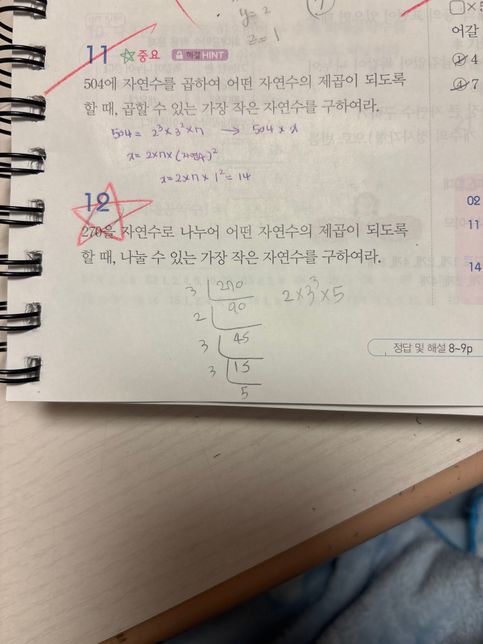 y=2
z=1
11 중요 해결 HINT
504에 자연수를 곱하여 어떤 자연수의 제곱이 되도록
할 때, 곱할 수 있는 가장 작은 자연수를 구하여라.
504 = 2³×3²×7 → 504×x
x=2×7×(자연수)²
x=2×7×1²=14
12
270을 자연수로 나누어 어떤 자연수의 제곱이 되도록
할 때, 나눌 수 있는 가장 작은 자연수를 구하여라.
3 270 2×3³×5
2 90
3 45
3 15
5
정답 및 해설 8~9p
□×5
어갈
① 4
④ 7
02
11
14